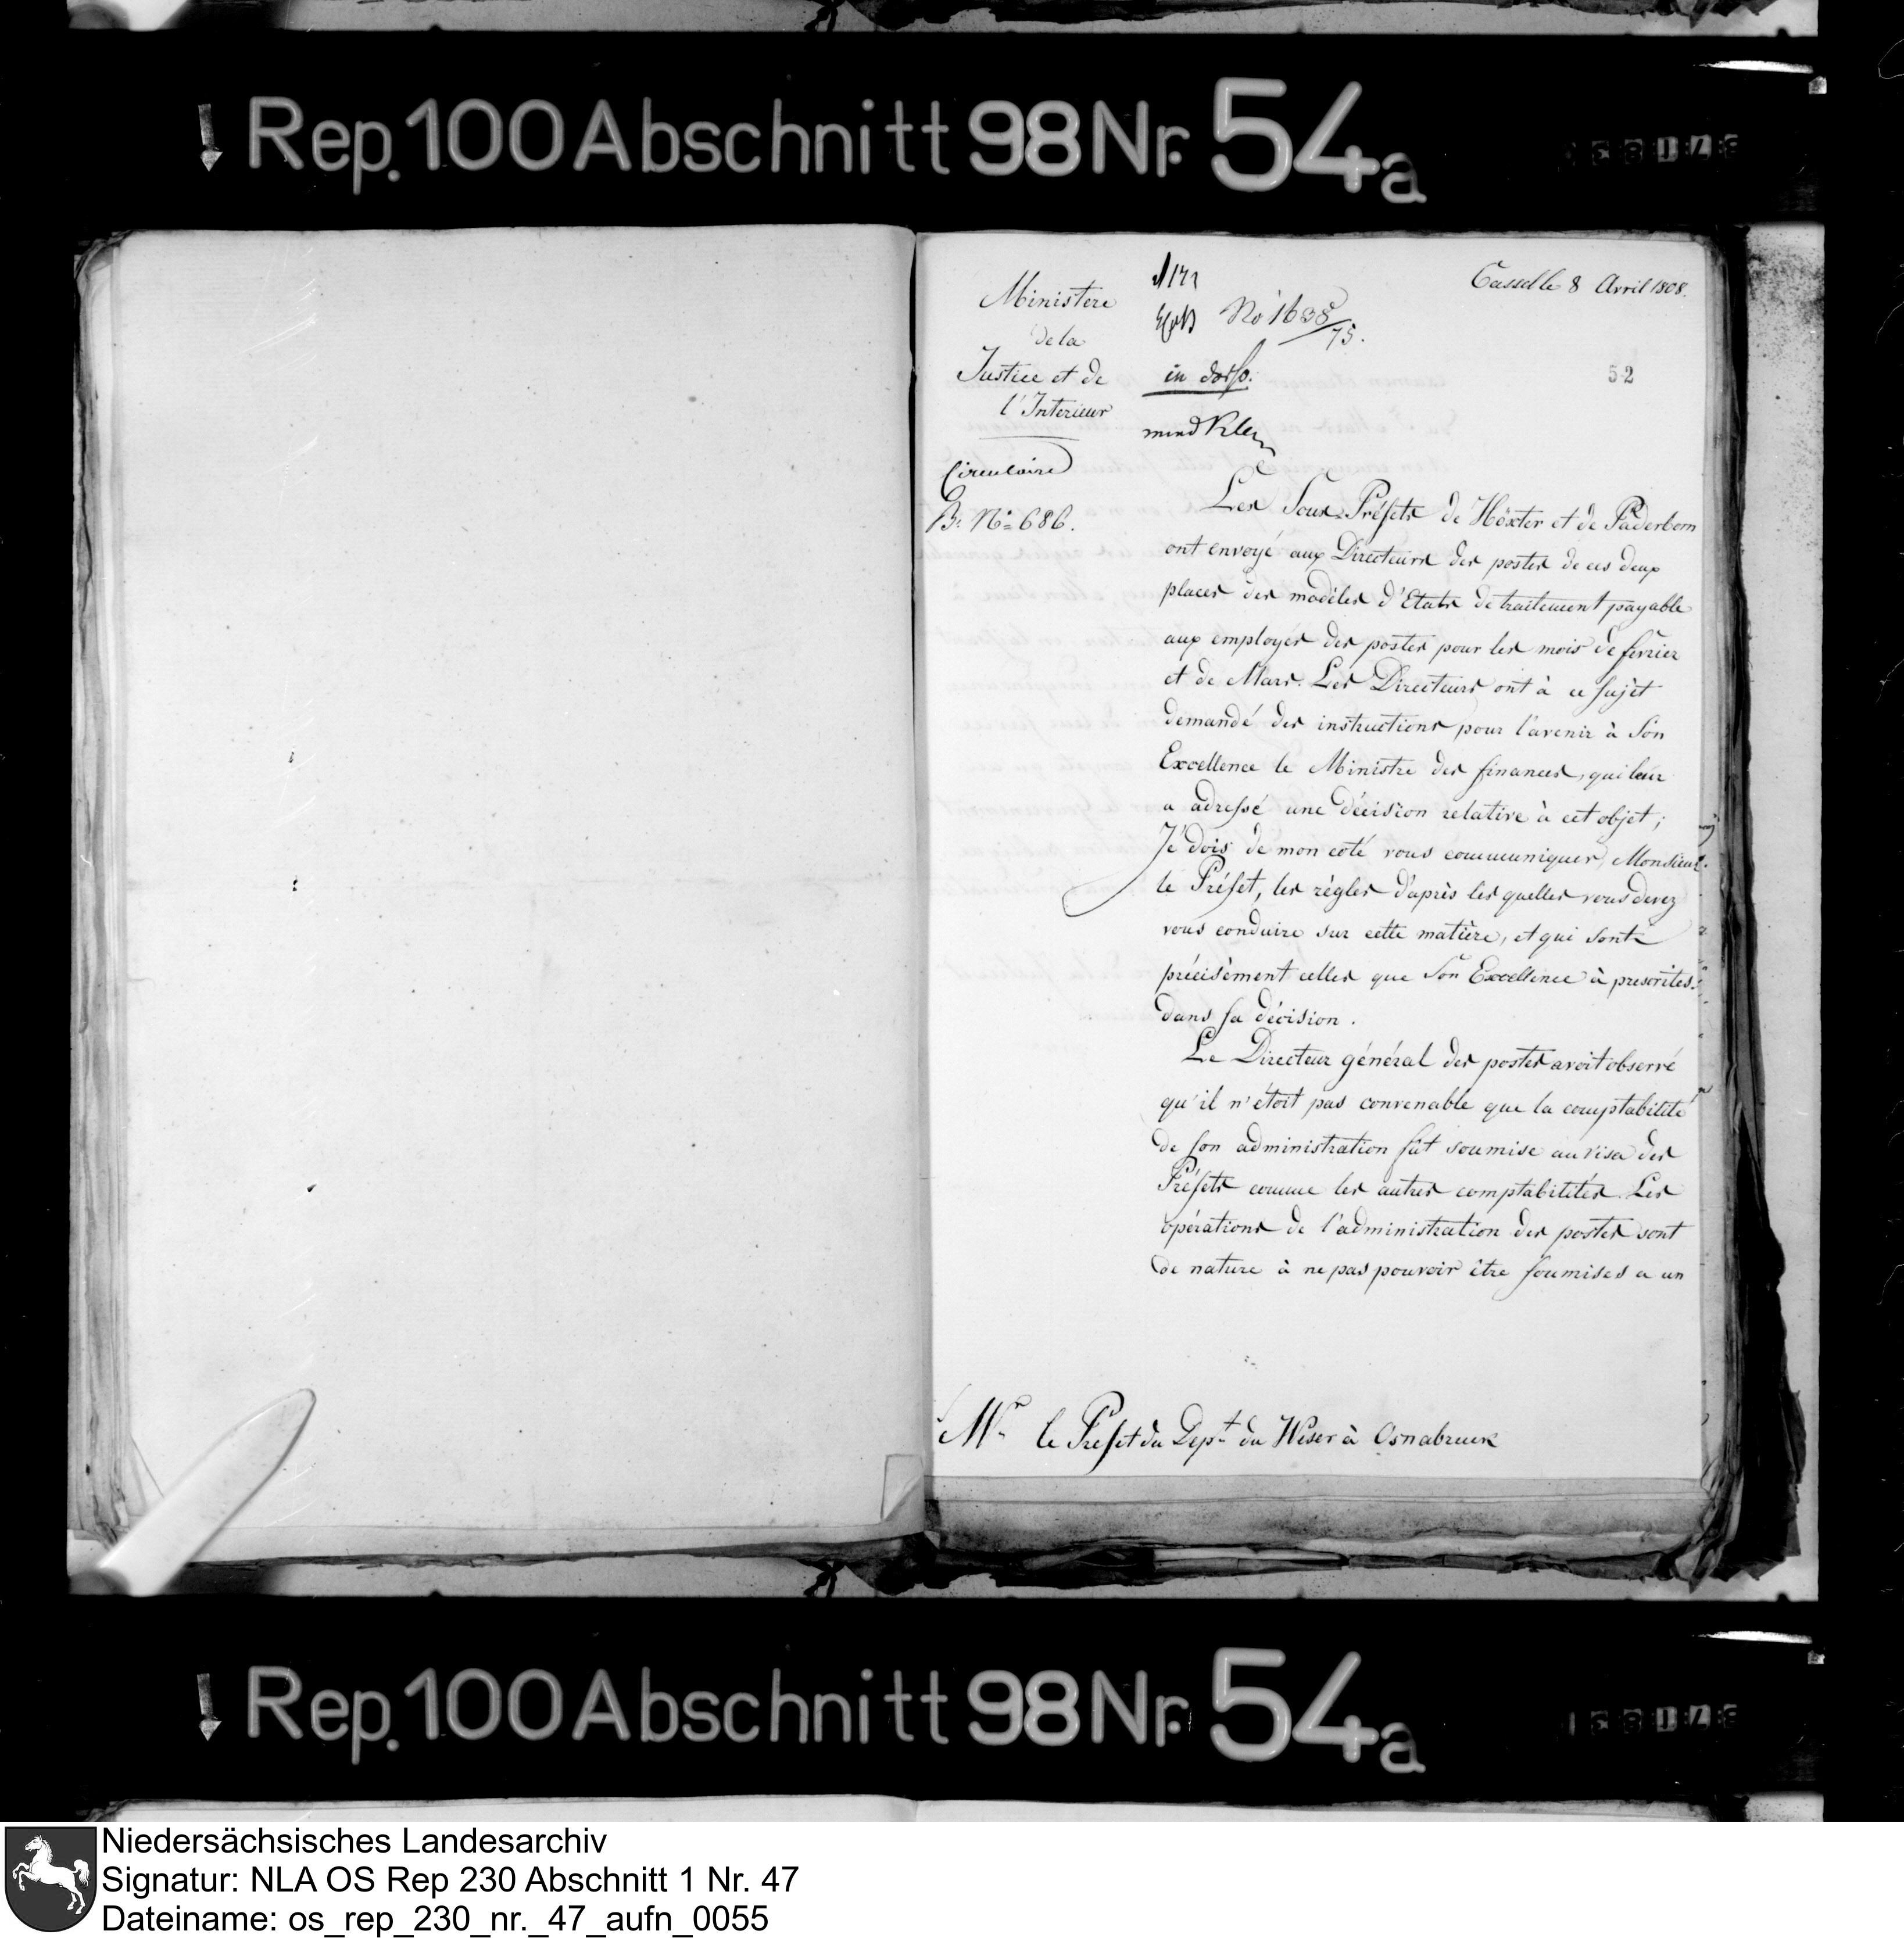 Rep. 100 Abschnitt 98 Nr. 54a
Cassel le 8 Avril 1808.
Ministere
de la
Justice et de
l'Interieur
No 1638/75.
in dorso.
52
Circulaire
B. No 686.
Les Sous-Préfets de Höxter et de Paderborn
ont envoyé aux Directeurs des postes de ces deux
places des modèles d'Etats de traitement payable
aux employés des postes pour les mois de fevrier
et de Mars. Les Directeurs ont à ce sujèt
demandé des instructions pour l'avenir à Son
Excellence le Ministre des finances, qui leur
a adressé une décision relative à cet objet;
Je dois de mon coté vous communiquer, Monsieur
le Préfet, les règles d'après les quelles vous devez
vous conduire sur cette matière, et qui sont
précisèment celles que Son Excellence à prescrites
dans sa décision.
Le Directeur général des postes avoit observé
qu'il n'étoit pas convenable que la comptabilité
de son administration fût soumise au visa des
Préfets comme les autres comptabilités. Les
opérations de l'administration des postes sont
de nature à ne pas pouvoir être soumises a un
Mr. le Prefet du Dept. du Weser à Osnabruck
Rep. 100 Abschnitt 98 Nr. 54a
Niedersächsisches Landesarchiv
Signatur: NLA OS Rep 230 Abschnitt 1 Nr. 47
Dateiname: os_rep_230_nr._47_aufn_0055